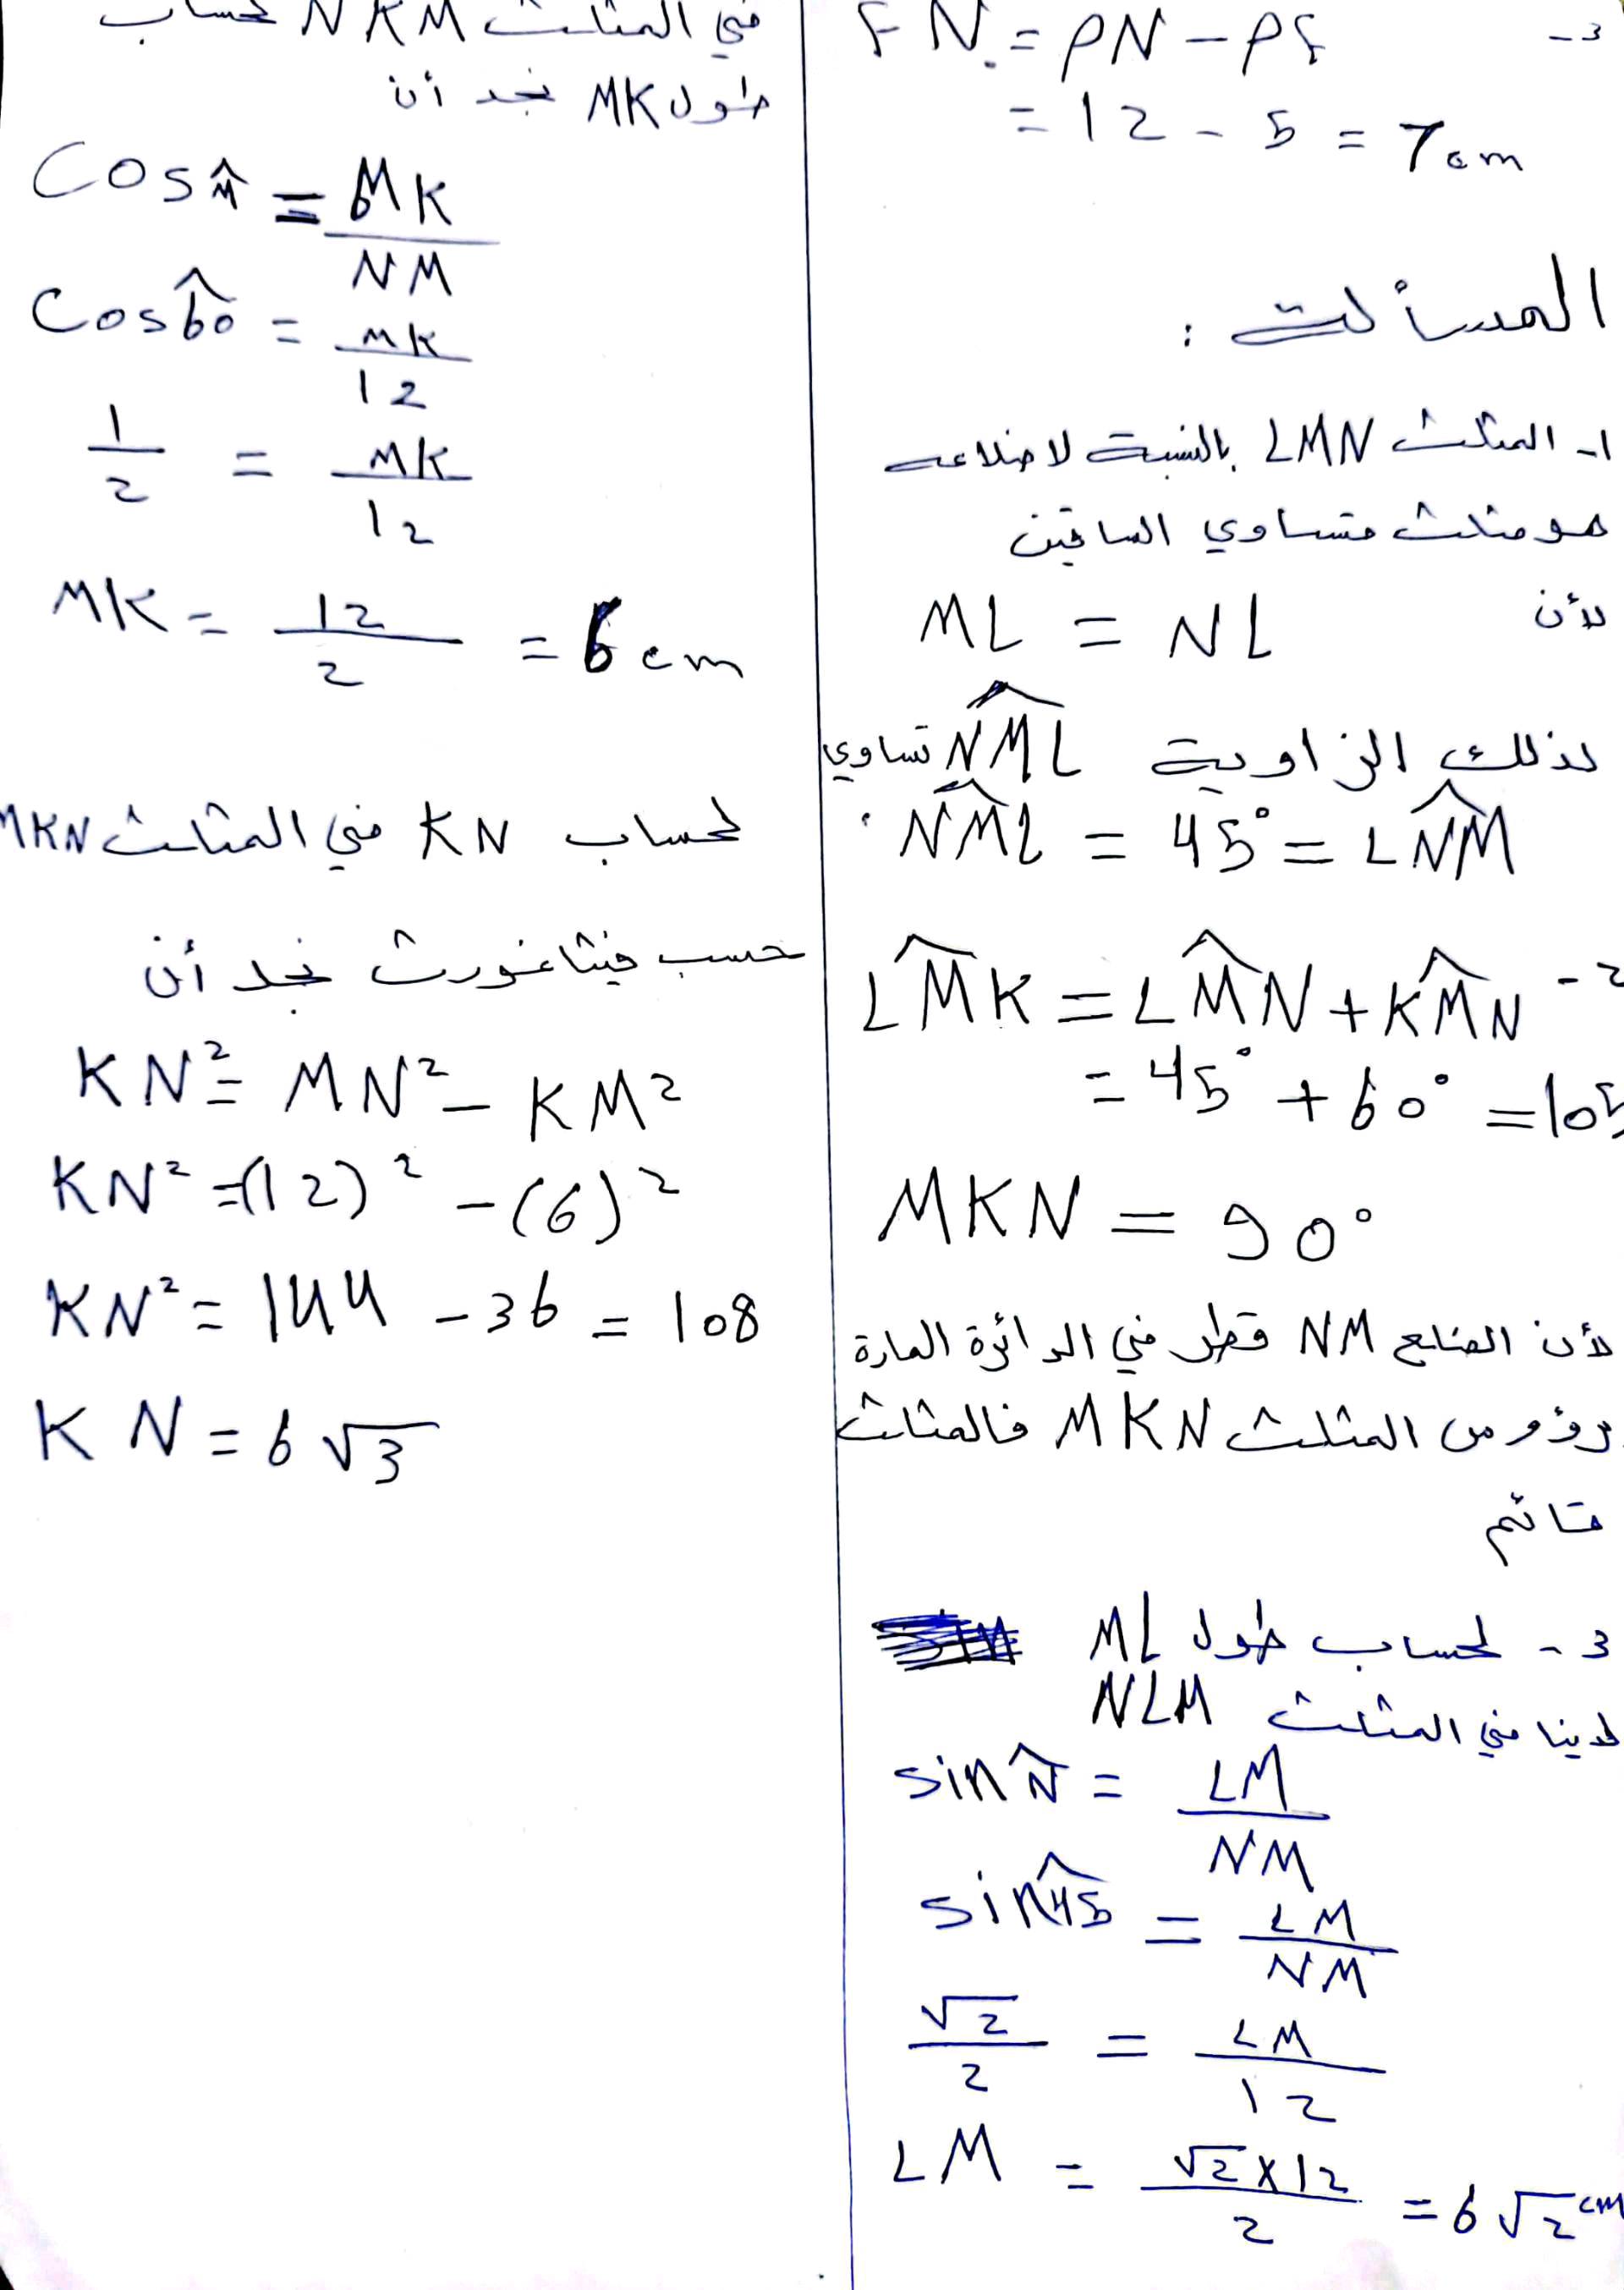 3- FN = PN - PF
= 12 - 5 = 7 cm
المسألة :
1- المثلث LMN بالنسبة لاضلاعه
هو مثلث متساوي الساقين
لأن ML = NL
لذلك الزاوية NML تساوي
NML = 45° = LNM
2- LMK = LMN + KMN
= 45° + 60° = 105
MKN = 90°
لأن الضلع NM قطر في الدائرة المارة
برؤوس المثلث MKN فالمثلث
قائم
3- لحساب طول ML
لدينا في المثلث NLM
sin N̂ = LM/NM
sin 45 = LM/NM
√2/2 = LM/12
LM = √2×12/2 = 6√2 cm
في المثلث NKM لحساب
طول MK نجد أن
Cos M̂ = MK/NM
Cos 60 = MK/12
1/2 = MK/12
MK = 12/2 = 6 cm
لحساب KN في المثلث MKN
حسب فيثاغورث نجد أن
KN² = MN² - KM²
KN² = (12)² - (6)²
KN² = 144 - 36 = 108
KN = 6√3